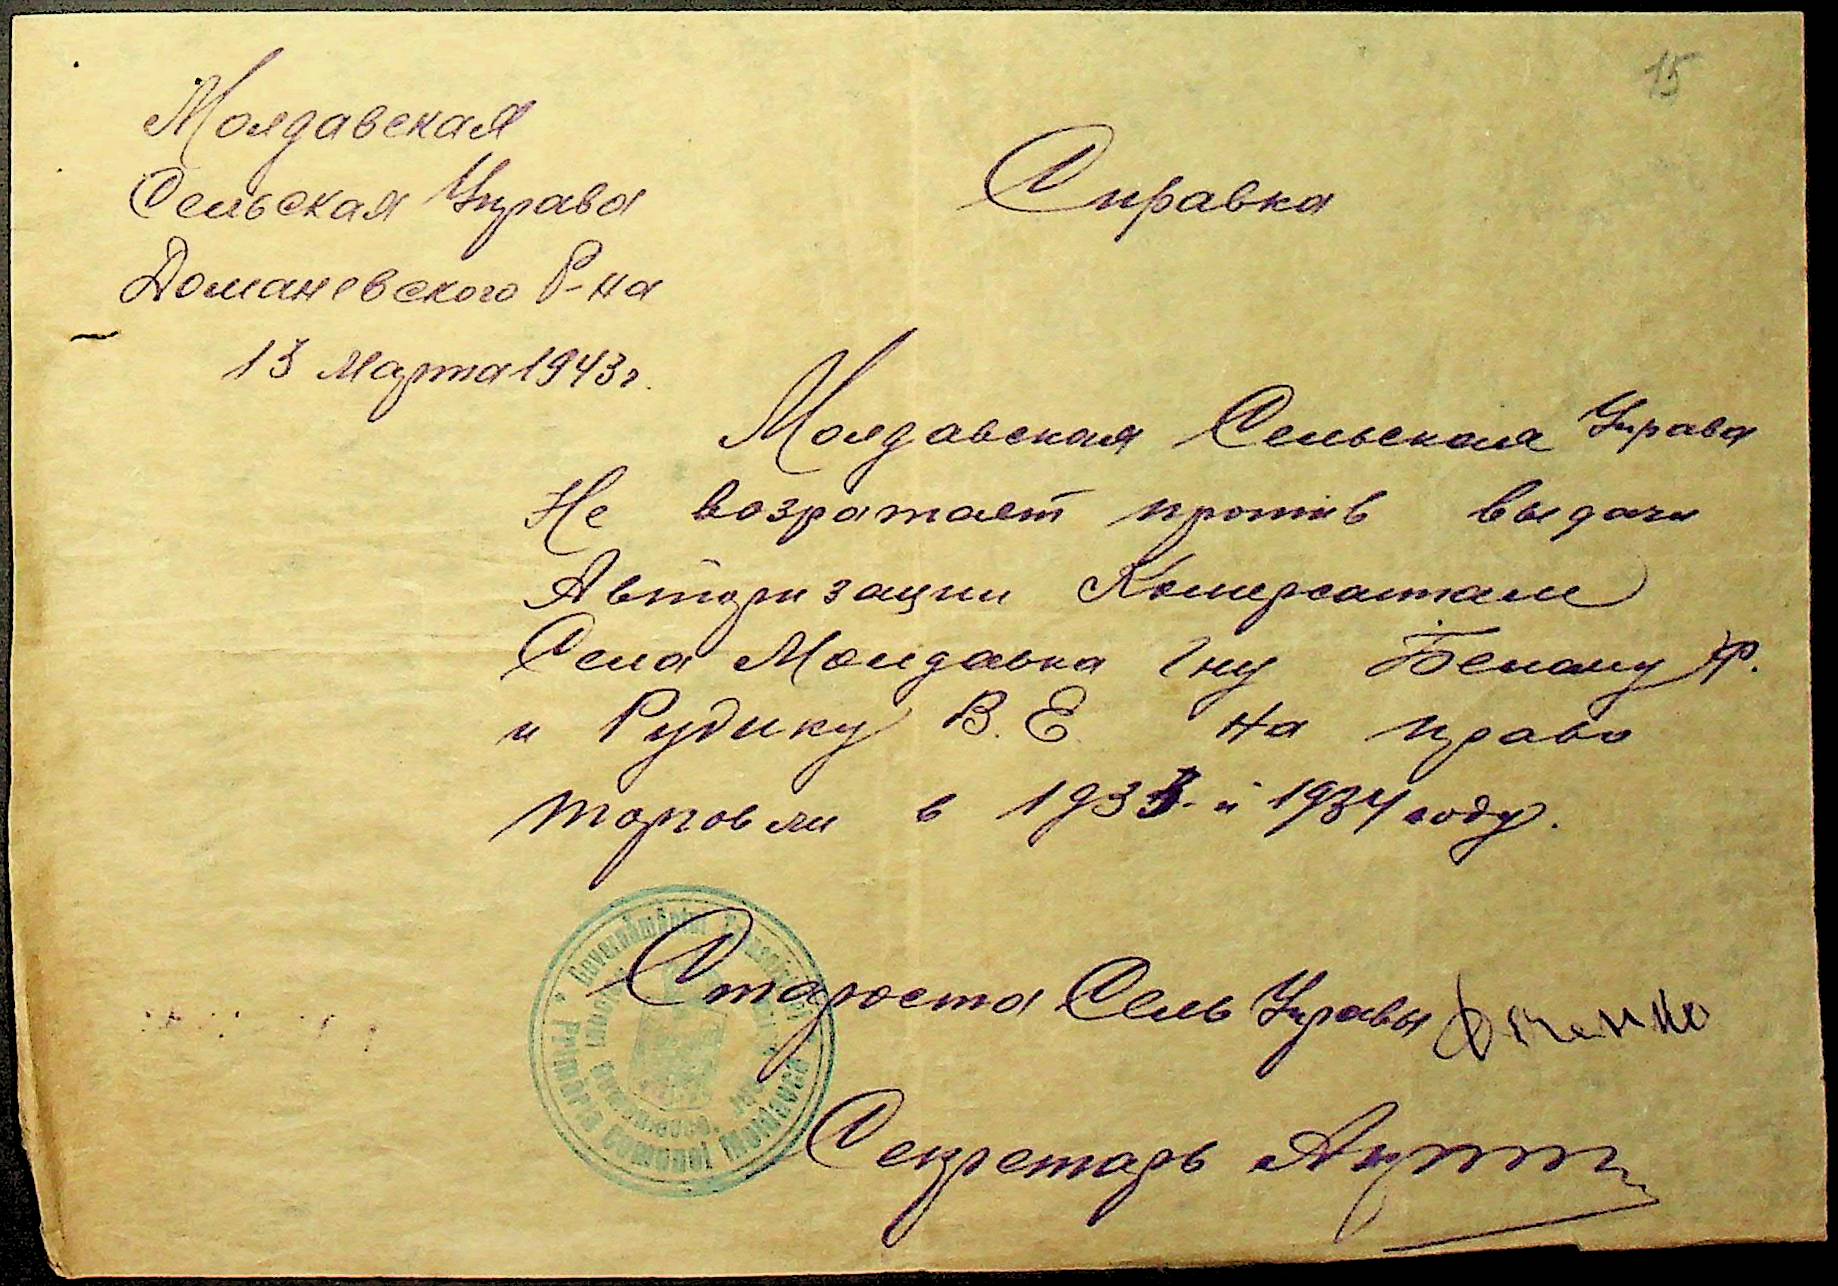 15
Молдавская
Сельская Управа
Доманевского Р-на
13 марта 1943 г.
Справка
Молдавская Сельская Управа
Не возратает против выдачи
Авторизации Комерсантам
Села Молдавка Гну Белому Ф.
и Рудику В. Е. на право
торговли в 1933 и 1934 году.
Староста Сель Управы
Секретарь
Guvernământul Transnistriei
Primăria Comunei Moldavca